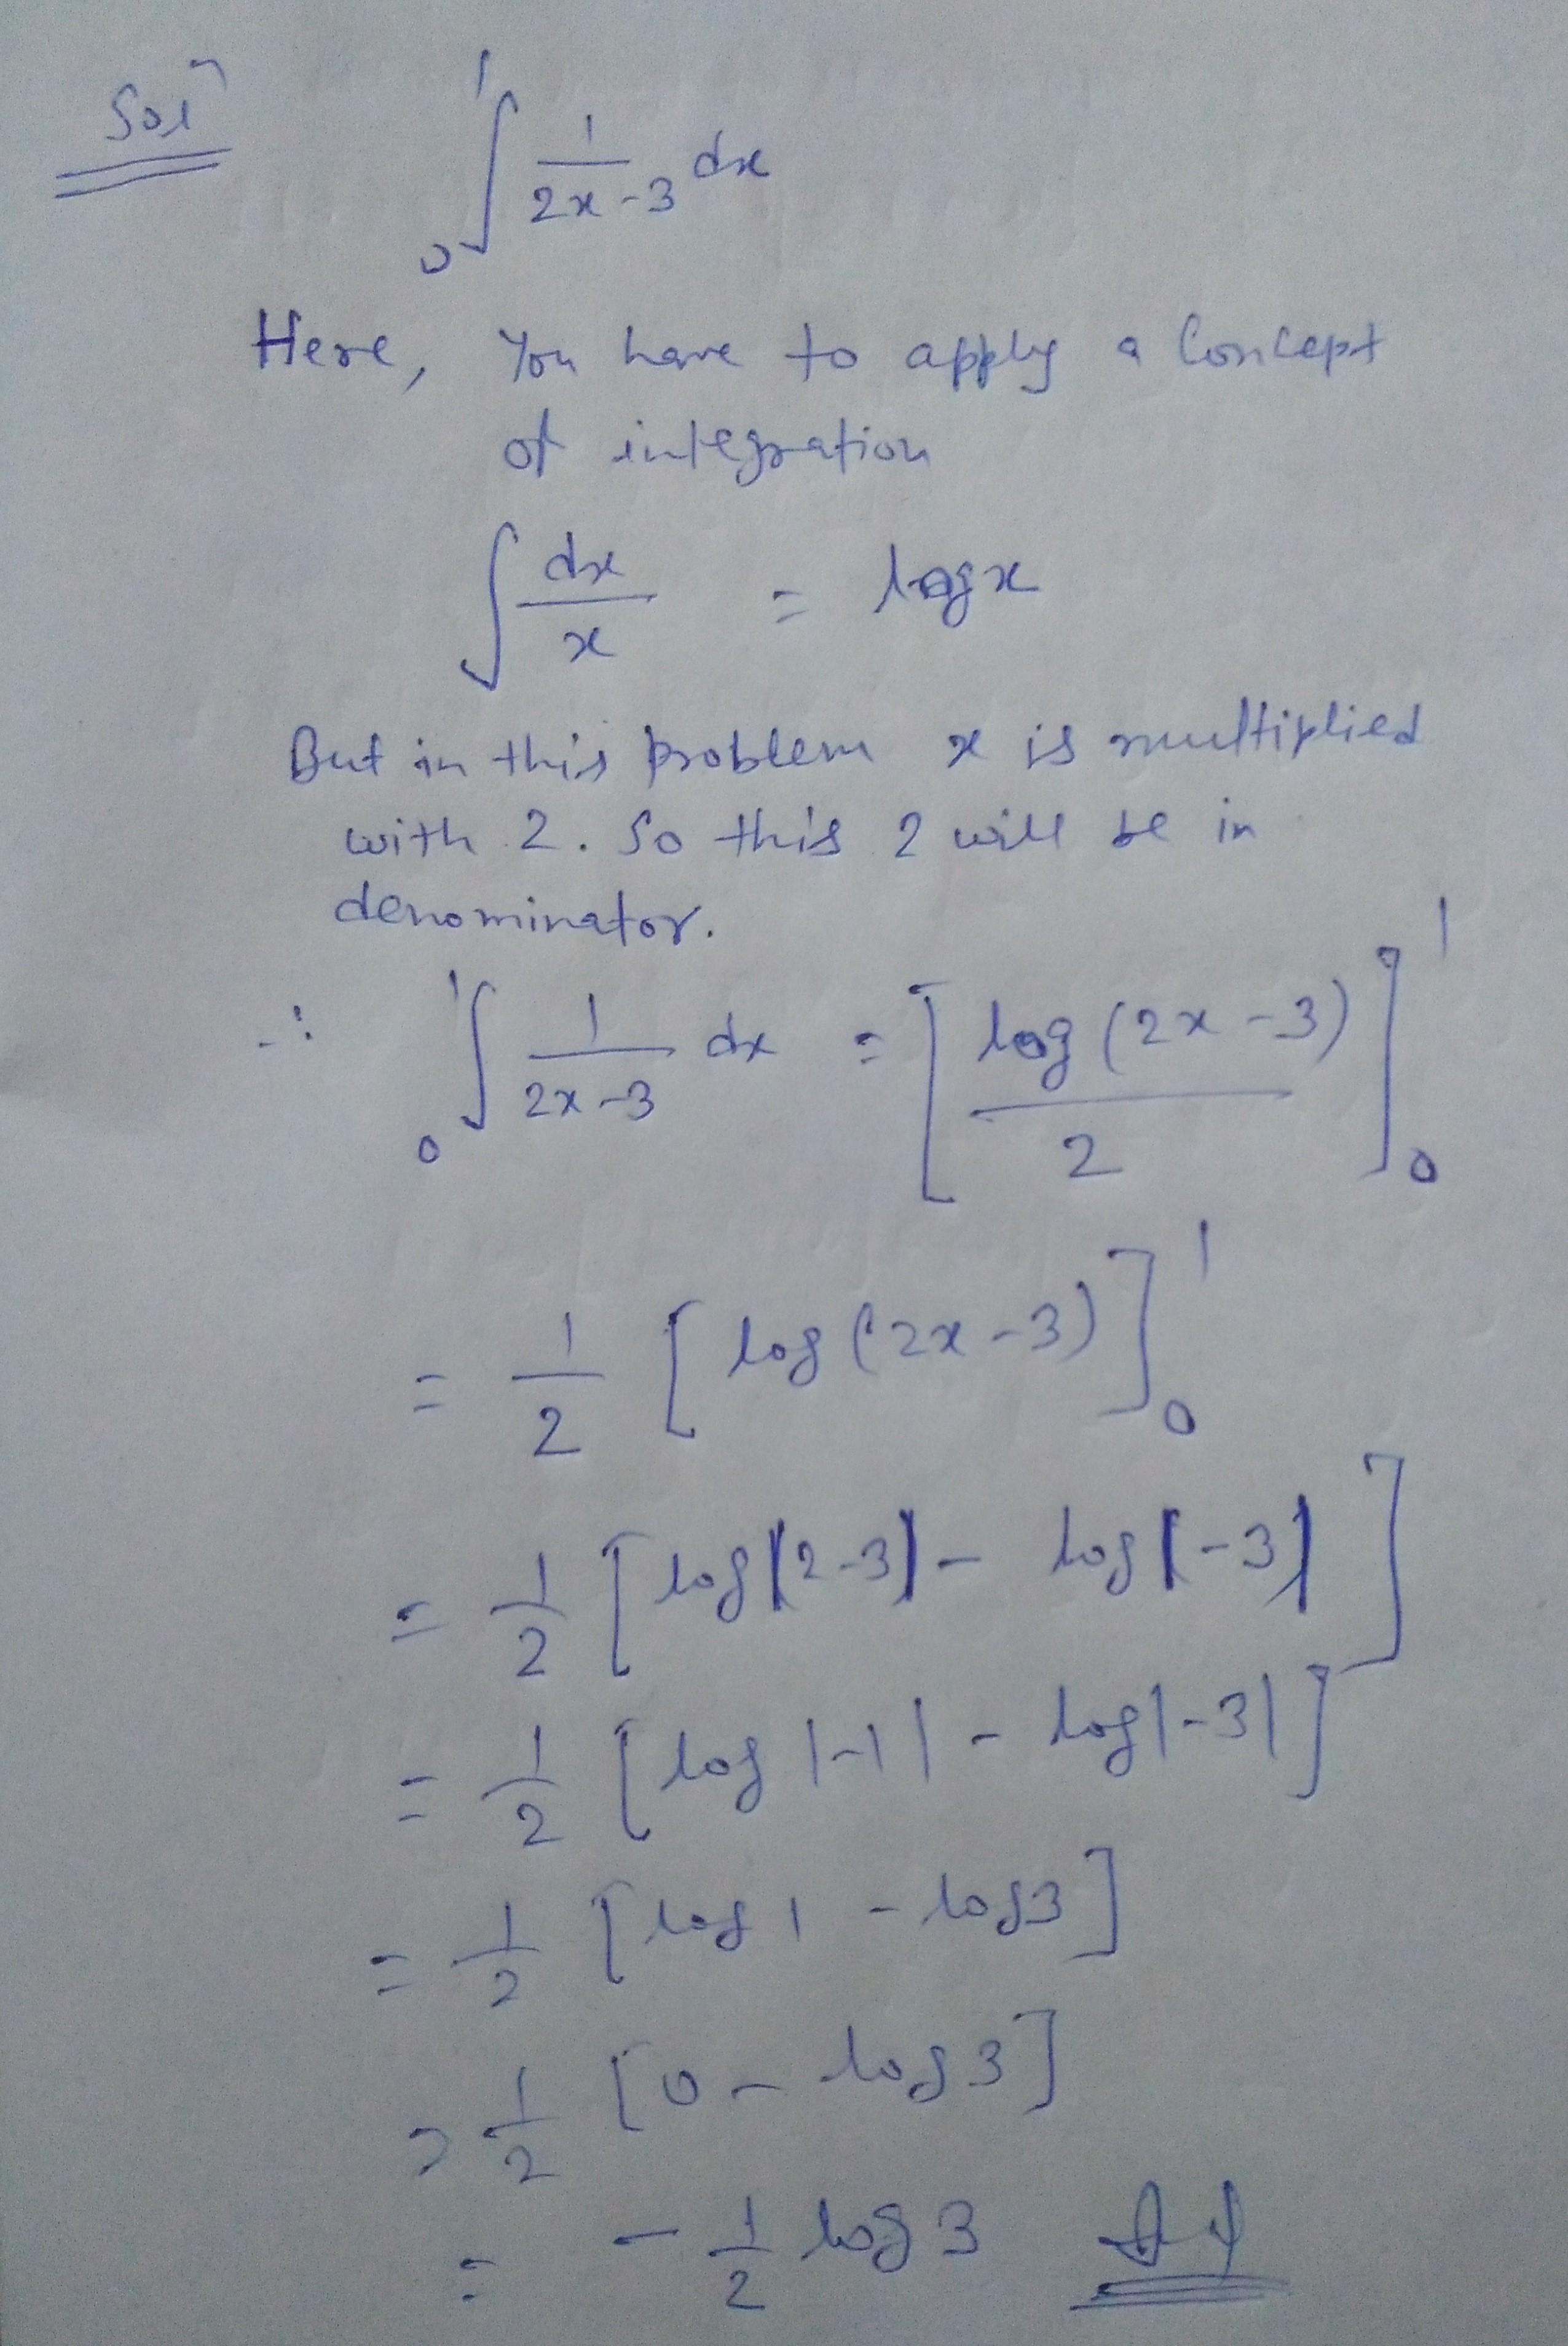 Solⁿ ₀∫¹ 1/(2x-3) dx
Here, You have to apply a concept
of integration
∫ dx/x = log x
But in this problem x is multiplied
with 2. So this 2 will be in
denominator.
∴ ₀∫¹ 1/(2x-3) dx = [log (2x-3)/2]₀¹
= 1/2 [log (2x-3)]₀¹
= 1/2 [log|2-3| - log|-3|]
= 1/2 [log |-1| - log|-3|]
= 1/2 [log 1 - log3]
= 1/2 [0 - log 3]
= - 1/2 log 3